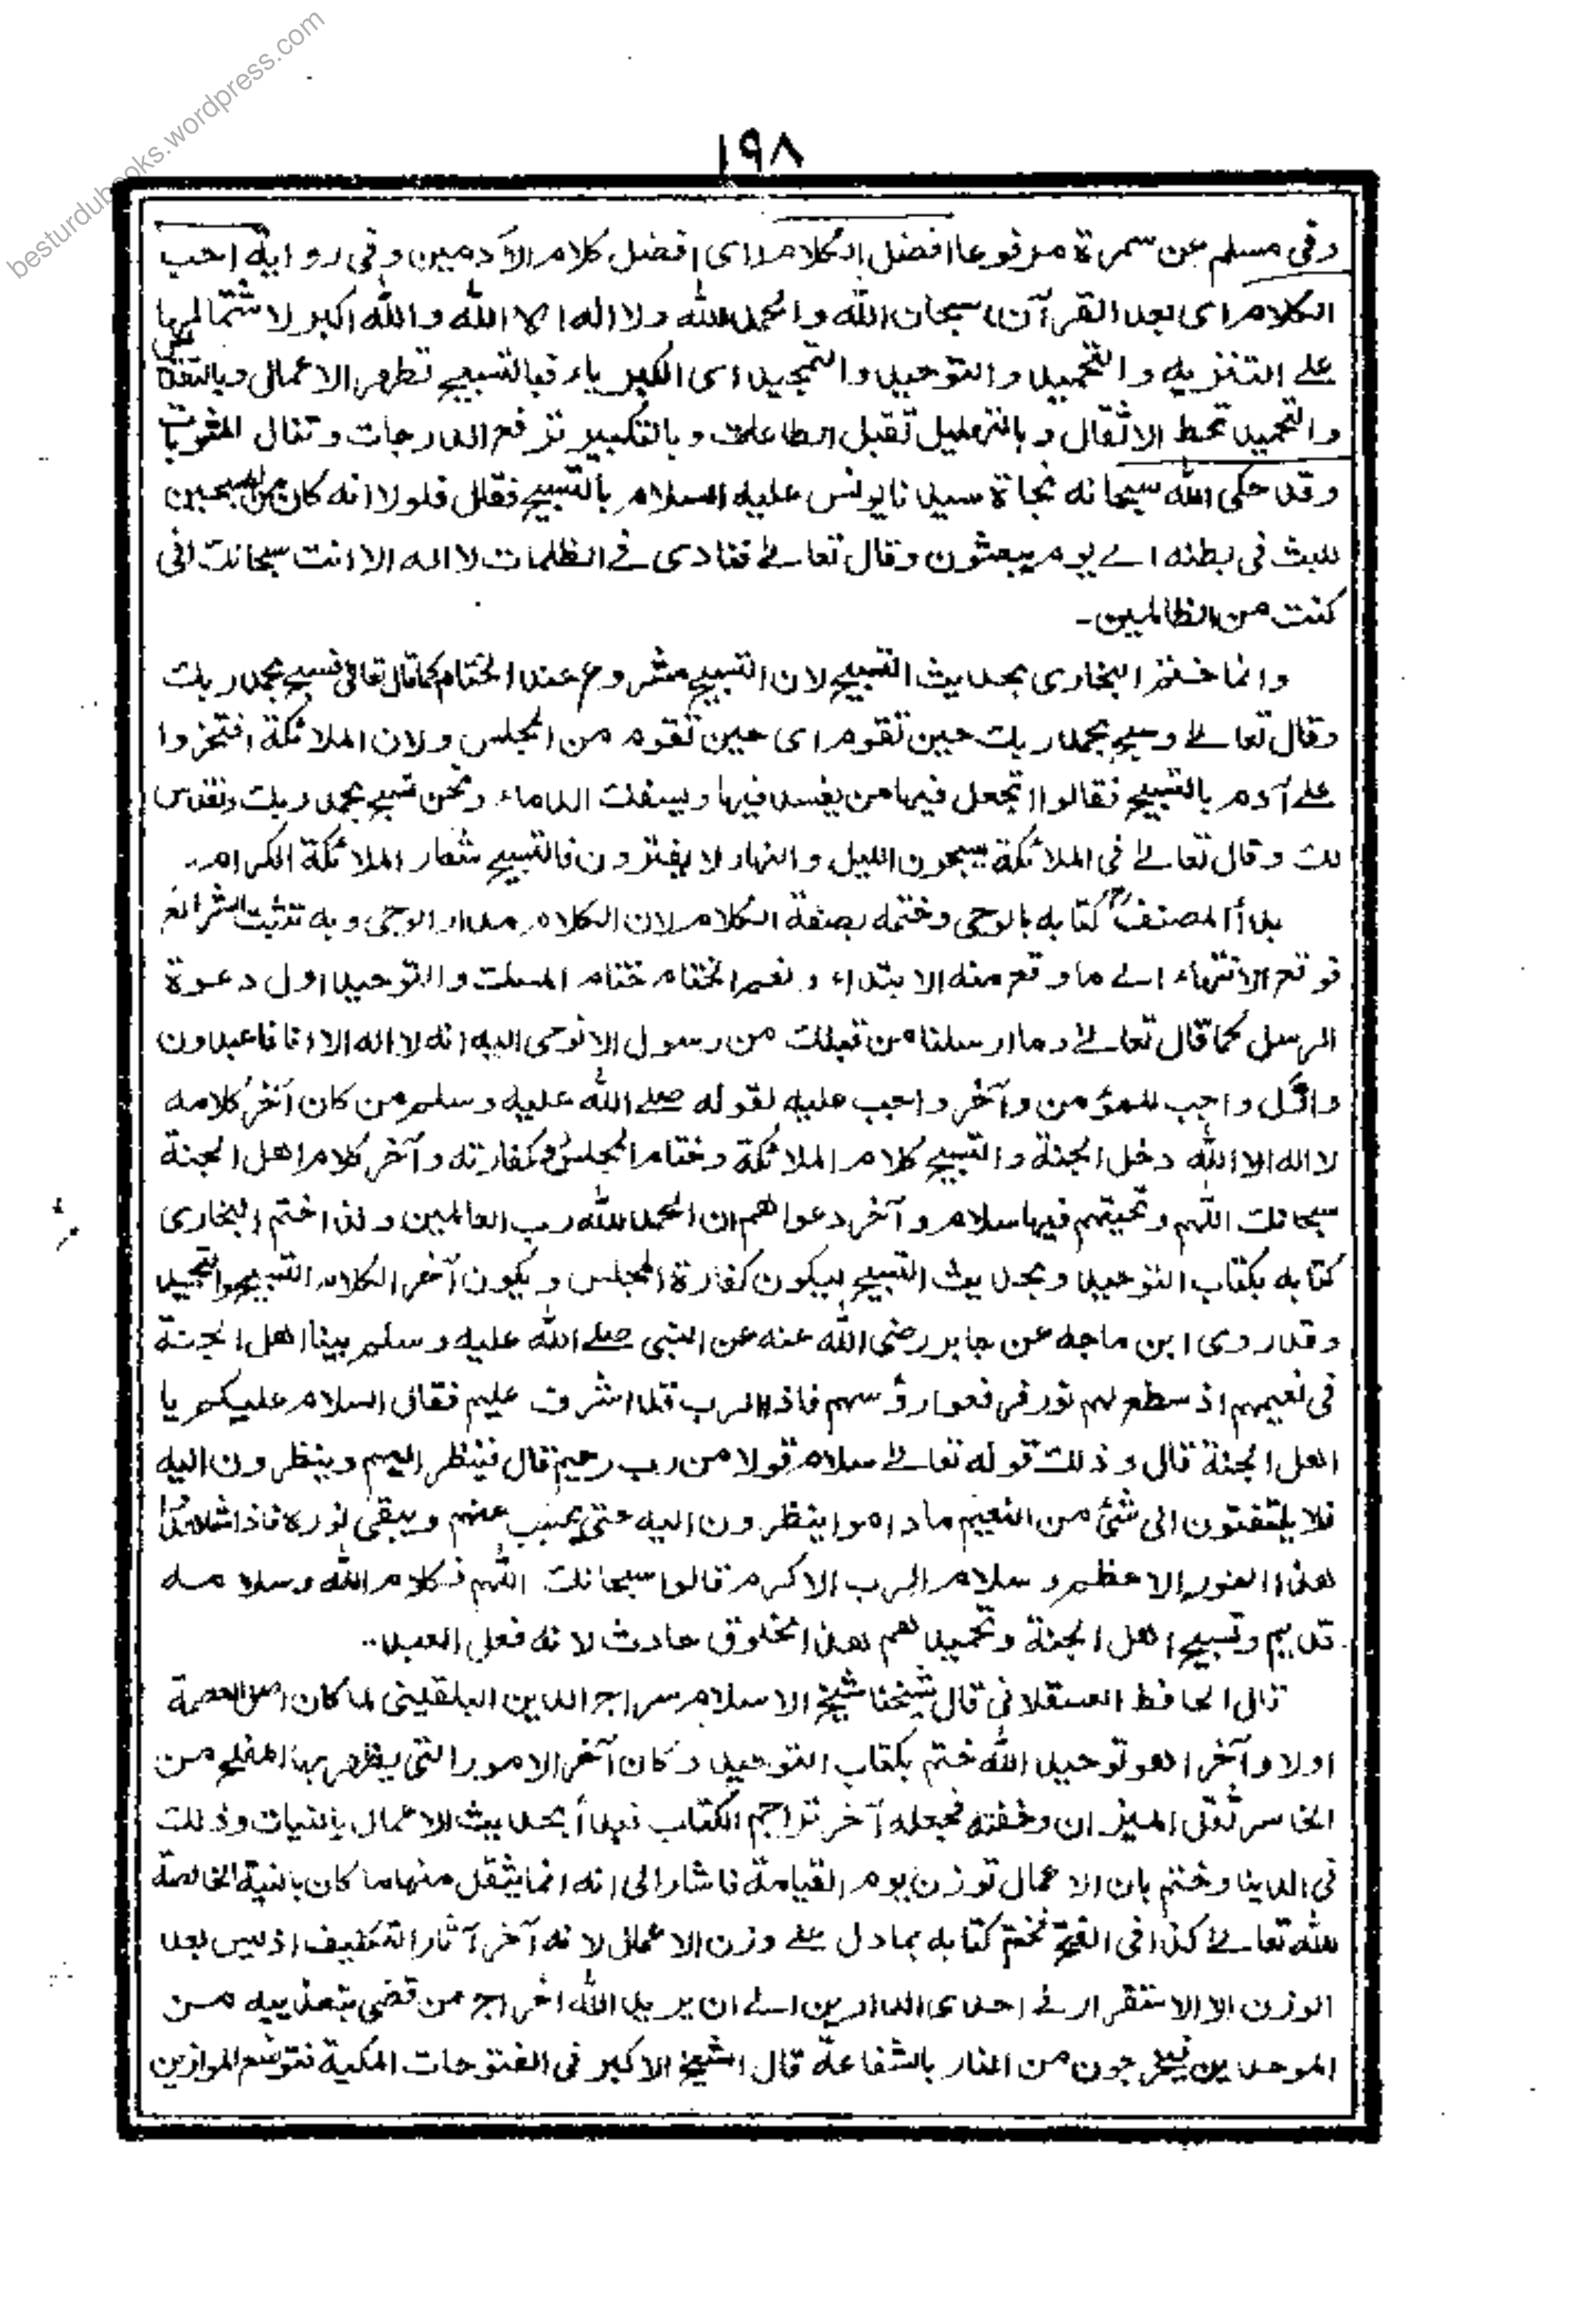 besturdubooks.wordpress.com
١٩٨
وفى مسلم عن سمرة مرفوعا افضل الكلام اى افضل كلام الآدميين وفى رواية احب
الكلام اى بعد القرآن سبحان الله والحمد لله ولا اله الا الله والله اكبر لاشتمالها
على التنزيه والتحميد والتوحيد والتمجيد اى الكبرياء فبالتسبيح تطهر الاعمال وبالتقديس
والتحميد تحط الاثقال وبالتهليل تقبل الطاعات وبالتكبير ترفع الدرجات وتنال المثوبات
وقد حكى الله سبحانه نجاة سيدنا يونس عليه السلام بالتسبيح فقال فلولا انه كان من المسبحين
للبث فى بطنه الى يوم يبعثون وقال تعالى فنادى فى الظلمات لا اله الا انت سبحانك انى
كنت من الظالمين۔
وانما ختم البخارى بحديث التسبيح لان التسبيح مشروع عند الختام كما قال تعالى فسبح بحمد ربك
وقال تعالى وسبح بحمد ربك حين تقوم اى حين تقوم من المجلس ولان الملائكة افتخروا
على آدم بالتسبيح فقالوا اتجعل فيها من يفسد فيها ويسفك الدماء ونحن نسبح بحمد ربك ونقدس
لك وقال تعالى فى الملائكة يسبحون الليل والنهار لا يفترون فالتسبيح شعار الملائكة الكرام۔
بدأ المصنفؒ كتابه بالوحى وختمه بصفة الكلام لان الكلام مدار الوحى وبه تثبت الشرائع
فوقع الانتهاء الى ما وقع منه الابتداء ونعم الختام ختام المسك والتوحيد اول دعوة
الرسل كما قال تعالى وما ارسلنا من قبلك من رسول الا نوحى اليه انه لا اله الا انا فاعبدون
واوّل واجب للمؤمن وآخر واجب عليه لقوله صلى الله عليه وسلم من كان آخر كلامه
لا اله الا الله دخل الجنة والتسبيح كلام الملائكة وختام المجلس وكفارته وآخر كلام اهل الجنة
سبحانك اللهم وتحيتهم فيها سلام وآخر دعواهم ان الحمد لله رب العالمين ولذا ختم البخارى
كتابه بكتاب التوحيد وبحديث التسبيح ليكون كفارة المجلس ويكون آخر الكلام التسبيح والتحميد
وقد روى ابن ماجه عن جابر رضى الله عنه عن النبى صلى الله عليه وسلم بينا اهل الجنة
فى نعيمهم اذ سطع لهم نور فرفعوا رؤسهم فاذا الرب قد اشرف عليهم فقال السلام عليكم يا
اهل الجنة قال وذلك قوله تعالى سلام قولا من رب رحيم قال فينظر اليهم وينظرون اليه
فلا يلتفتون الى شئ من النعيم ما داموا ينظرون اليه حتى يحتجب عنهم ويبقى نوره فاذا شاهدوا
هذا النور الاعظم وسلام الرب الاكرم قالوا سبحانك اللهم فكلام الله وسلامه
قديم وتسبيح اهل الجنة وتحميدهم هذا مخلوق حادث لانه فعل العبد۔
قال الحافظ العسقلانى قال شيخنا شيخ الاسلام سراج الدين البلقينى لما كان اصل العصمة
اولا وآخرا هو توحيد الله ختم بكتاب التوحيد وكان آخر الامور التى يظهر بها المفلح من
الخاسر ثقل الميزان وخفته فجعله آخر تراجم الكتاب فبدأ بحديث الاعمال بالنيات وذلك
فى الدنيا وختم بان الاعمال توزن يوم القيامة فاشار الى انه انما يثقل منها ما كان بالنية الخالصة
لله تعالى كذا فى الفتح فختم كتابه بما دل على وزن الاعمال لانه آخر آثار التكليف اذ ليس بعد
الوزن الا الاستقرار فى احدى الدارين الى ان يريد الله اخراج من قضى بتعذيبه من
الموحدين فيخرجون من النار بالشفاعة قال الشيخ الاكبر فى الفتوحات المكية فتوضع الموازين